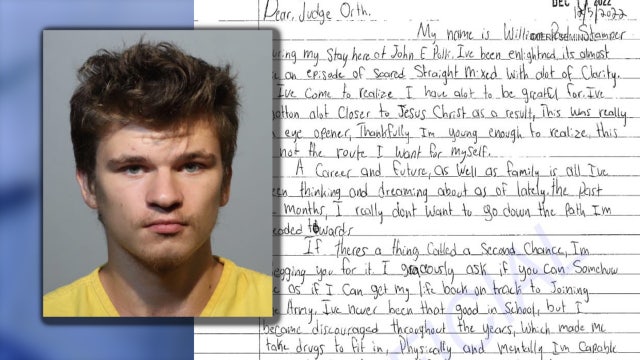 DEC 2022
Dear, Judge Orth. 12/5/2022
My name is William Stamper
my Stay here at John E Polk. Ive been enlightned, its almost
an episode of Scared Straight mixed with alot of Clarity.
Ive come to realize I have alot to be greatful for. Ive
alot Closer to Jesus Christ as a result, This was really
eye opener, Thankfully Im young enough to realize, this
not the route I want for myself.
A Career and future, as well as family is all Ive
thinking and dreaming about as of lately. the Past
months, I really dont want to go down the Path Im
towards
If theres a thing Called a Second Chance, Im
you for it. I ask if you can Somehow
as if I Can get my life back on track to Joining
Army, Ive never been that good in School, but I
became discouraged throughout the years, which made me
take drugs to fit in, Physically and mentally Im Capable